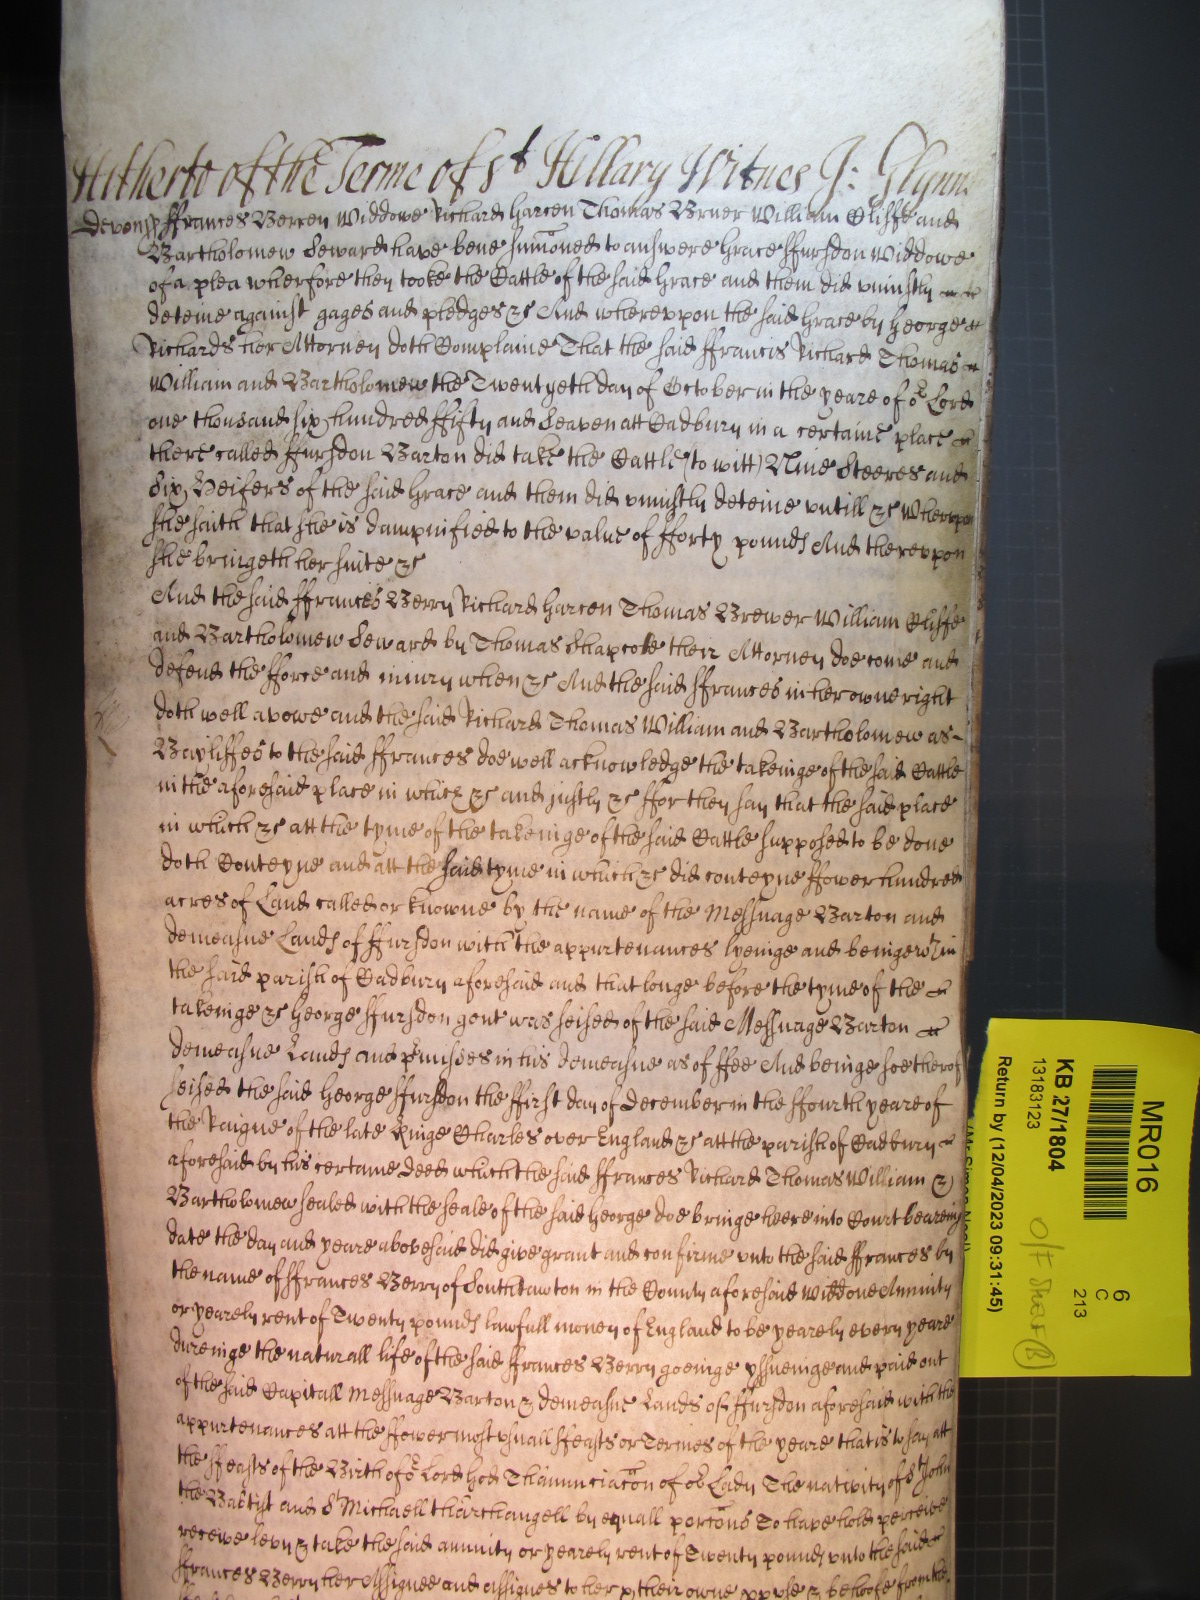 Hitherto of the Terme of St Hillary Witnes J: Glynn
Devon ss ffrances Berrey Widdowe Richard Harcey Thomas Bruer William Oliffe and
Bartholomew Seward have bene sumoned to answere Grace ffursdon Widdowe
of a plea wherfore they tooke the Cattle of the said Grace and them did uniustly
deteine against gages and pledges &c And whereuppon the said Grace by George
Richards her Attorney doth Complaine That the said ffrancis Richard Thomas
William and Bartholomew the Twentyeth day of October in the yeare of or Lord
one thousand six hundred ffifty and Seaven att Cadbury in a certaine place
there called ffursdon Barton did take the Cattle (to witt) Nine Steeres and
Six Heifers of the said Grace and them did uniustly deteine untill &c Wherupon
she saith that she is dampnified to the value of fforty pounds And thereuppon
she bringeth her suite &c
And the said ffrances Berry Richard Harcey Thomas Brewer William Oliffe
and Bartholomew Seward by Thomas Shapcote their Attorney doe come and
defend the fforce and iniury when &c And the said ffrances in her owne right
doth well avowe and the said Richard Thomas William and Bartholomew as
Bayliffes to the said ffrances doe well acknowledge the takeinge of the said Cattle
in the aforesaid place in which &c and justly &c ffor they say that the said place
in which &c att the tyme of the takeinge of the said Cattle supposed to be done
doth Conteyne and att the said tyme in which &c did conteyne ffower hundred
acres of Land called or knowne by the name of the Messuage Barton and
demeasne Lands of ffursdon with the appurtenances lyeinge and beinge wthin
the said parish of Cadbury aforesaid and that longe before the tyme of the
takeinge &c George ffursdon gent was seised of the said Messuage Barton
demeasne Lands and pmisses in his demeasne as of ffee And beinge soe therof
seised the said George ffursdon the ffirst day of December in the ffourth yeare of
the Raigne of the late Kinge Charles over England &c att the parish of Cadbury
aforesaid by his certaine deed which the said ffrances Richard Thomas William &
Bartholomew sealed with the seale of the said George doe bringe heere into Court beareing
date the day and yeare abovesaid did give grant and confirme unto the said ffrances by
the name of ffrances Berry of Southtawton in the County aforesaid Widdone Annuity
or yearely rent of Twenty pounds lawfull money of England to be yearely every yeare
dureinge the naturall life of the said ffrances Berry goeinge yssueinge and paid out
of the said Capitall Messuage Barton & demeasne Lands of ffursdon aforesaid with the
appurtenances att the ffower most usuall ffeasts or Termes of the yeare that is to say att
the ffeasts of the Birth of or Lord God Thannunciacon of or Lady The nativity of St John
the Baptist and St Michaell tharchangell by equall porcons To have hold perceive
receive levy & take the said annuity or yearely rent of Twenty pounds unto the said
ffrances Berry her Assignee and assignes to her & their owne pp use & behoofe from the
MR016
6
C
213
KB 27/1804
13183123
O/F Sheaf (B)
Return by (12/04/2023 09:31:45)